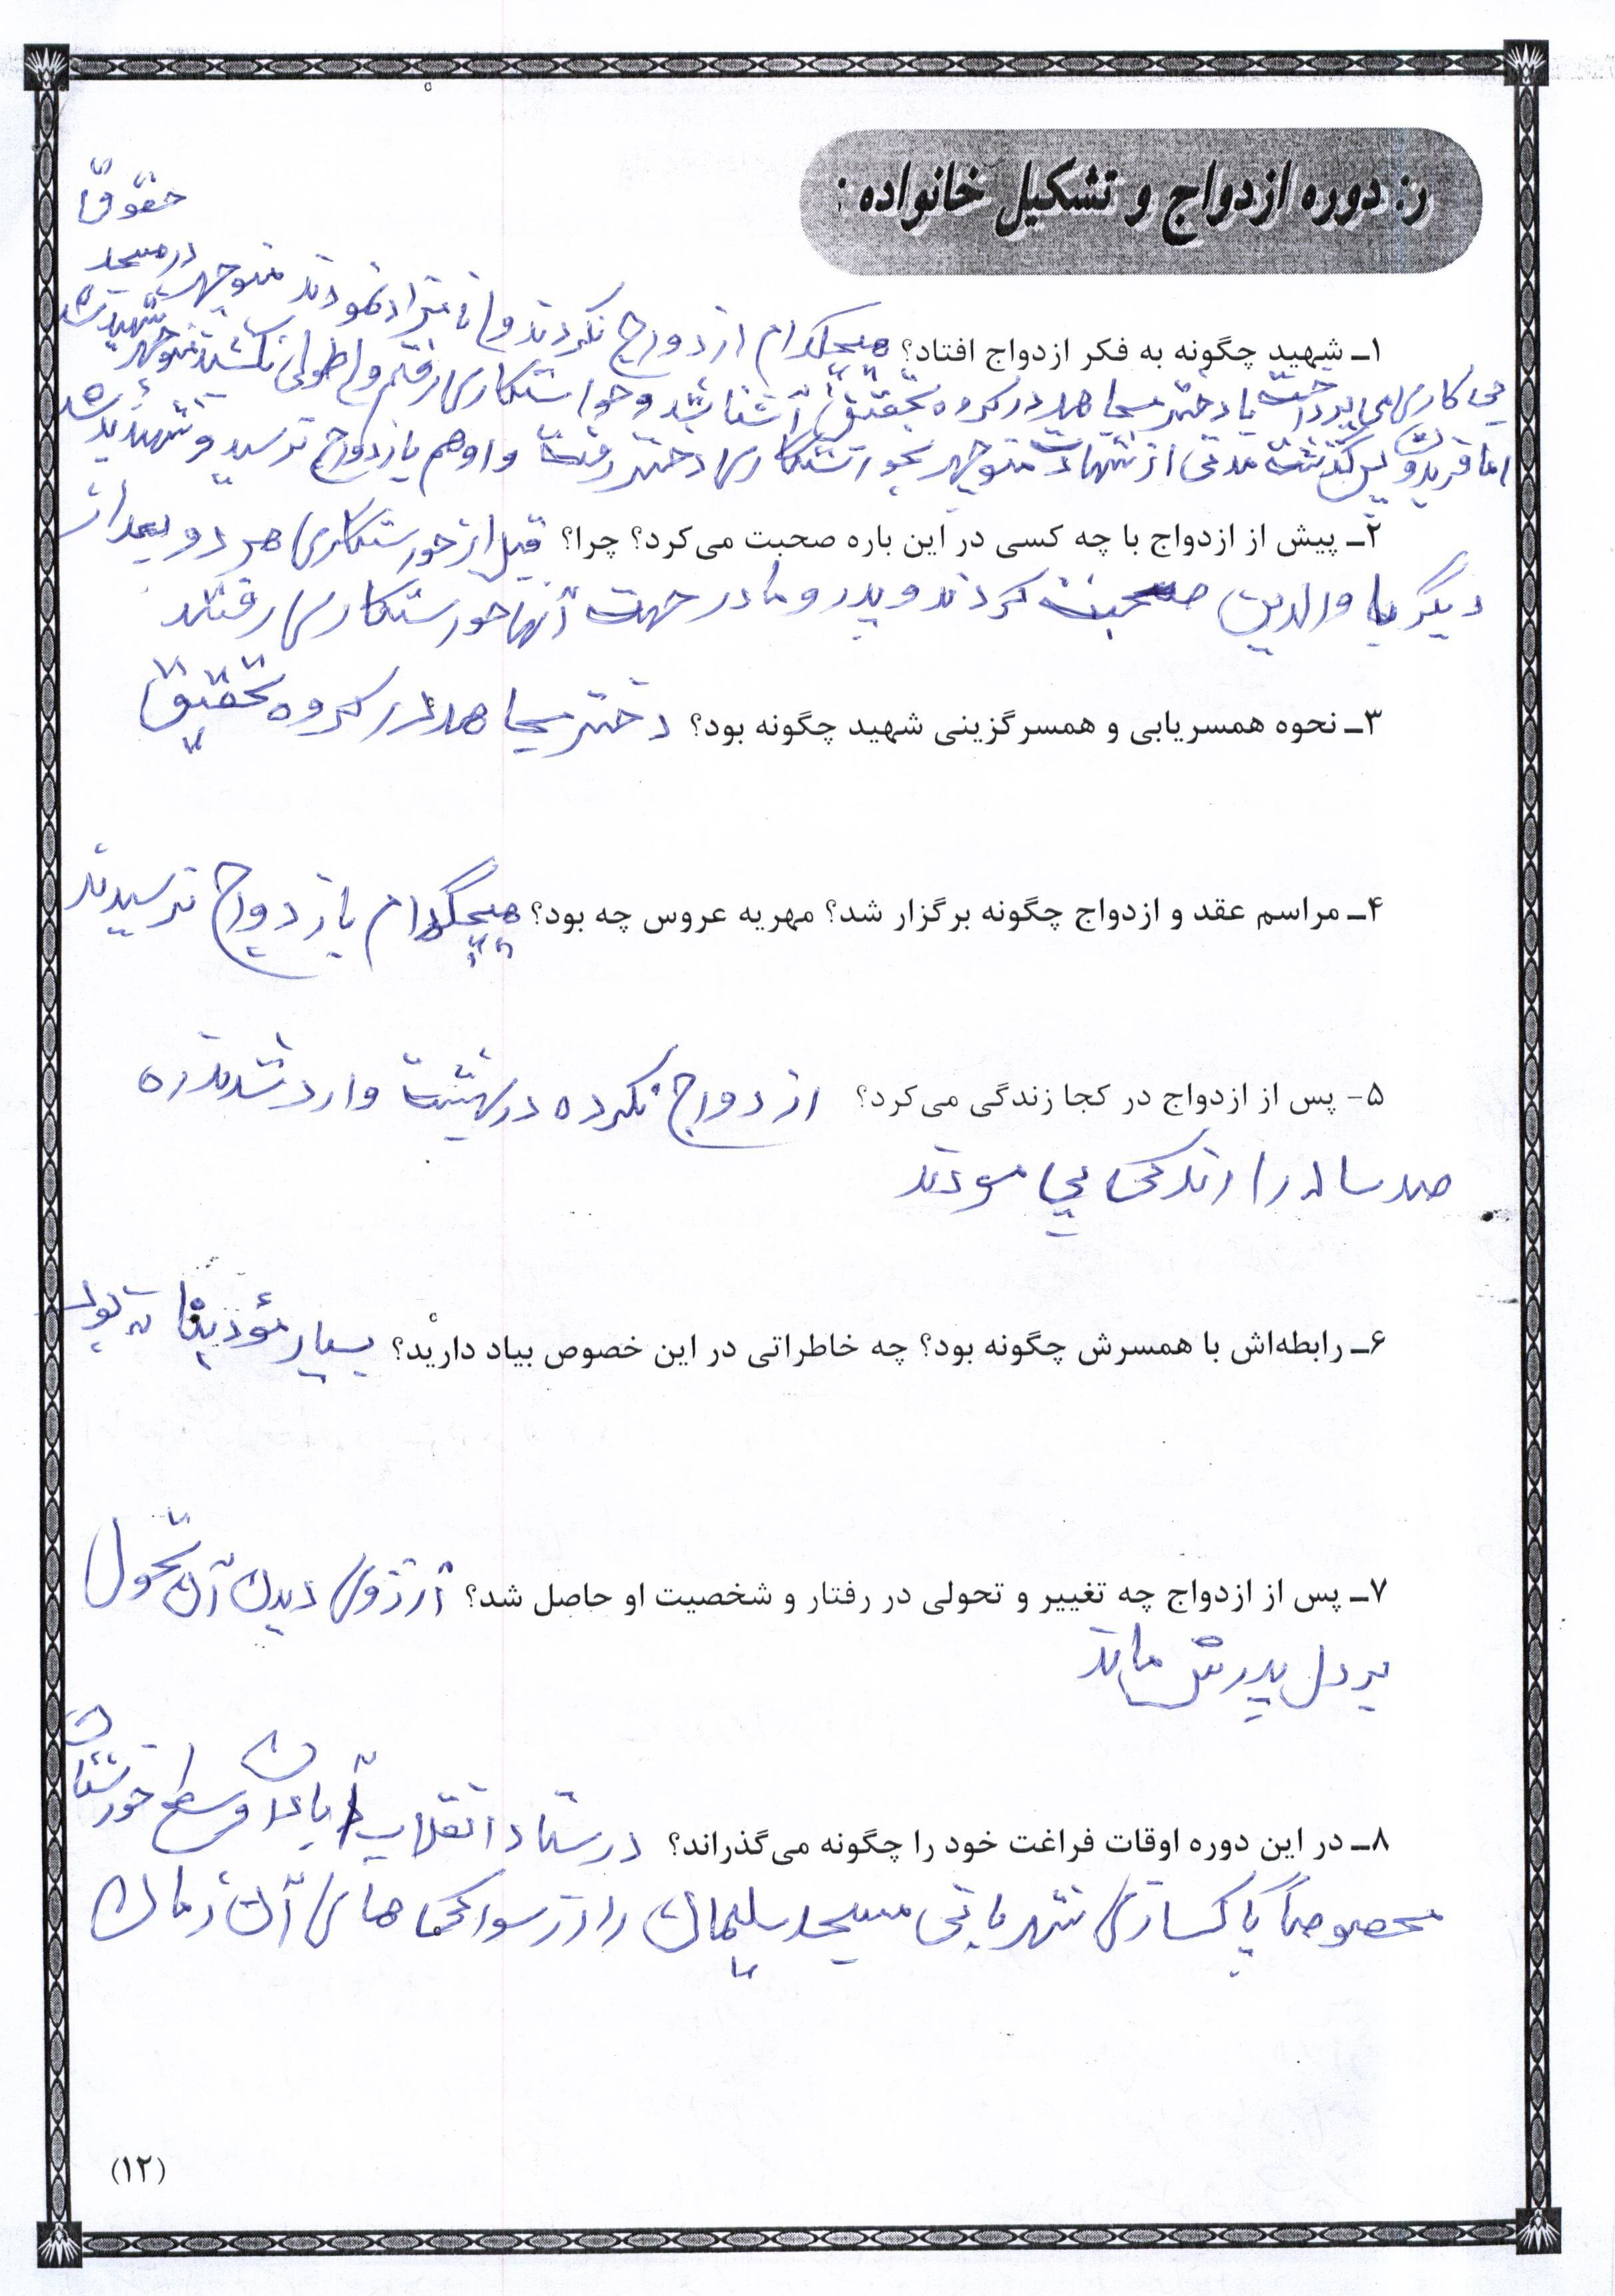 ر: دوره ازدواج و تشکیل خانواده:
حقوق
۱ـ شهید چگونه به فکر ازدواج افتاد؟ هیچکدام ازدواج نکردند ولی نامزد نمودند منوچهر در مسجد
می پرداخت با دختر مجاهد در گروه تحقیق آشنا شد و خواستگاری رفتیم ولی طولی نکشید منوچهر شهید شد
اما فریدون پس گذشت مدتی از شهادت منوچهر بخواستگاری دختر رفت و او هم بازدواج نرسید و شهید شد
۲ـ پیش از ازدواج با چه کسی در این باره صحبت می‌کرد؟ چرا؟ قبل از خورستگاری هر دو بعد از
دیگر با والدین صحبت کردند و پدر و مادر جهت آنها خورستگاری رفتند
۳ـ نحوه همسریابی و همسرگزینی شهید چگونه بود؟ دختر مجاهد در گروه تحقیق
۴ـ مراسم عقد و ازدواج چگونه برگزار شد؟ مهریه عروس چه بود؟ هیچکدام بازدواج نرسیدند
۵- پس از ازدواج در کجا زندگی می‌کرد؟ ازدواج نکرده در بهشت وارد شدند ره
صد ساله را می
۶ـ رابطه‌اش با همسرش چگونه بود؟ چه خاطراتی در این خصوص بیاد دارید؟ بسیار مؤدبانه بود
۷ـ پس از ازدواج چه تغییر و تحولی در رفتار و شخصیت او حاصل شد؟ آرزوی دیدن آن تحول
بر دل پدرش ماند
۸ـ در این دوره اوقات فراغت خود را چگونه می‌گذراند؟ در ستاد انقلاب
مخصوصاً پاکسازی شهربانی مسجدسلیمان را از ساواکی های آن زمان
(۱۲)